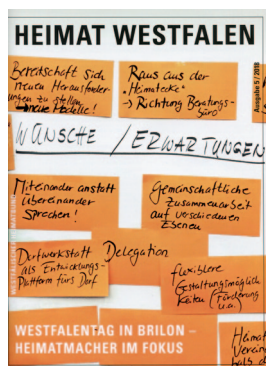 HEIMAT WESTFALEN
Ausgabe 5 / 2018
Bereitschaft sich
neuen Herausforder-
ungen zu stellen
→ neue Modelle!
Raus aus der
"Heimatecke"
→ Richtung Beratungs-
büro"
WÜNSCHE / ERWARTUNGEN
Miteinander anstatt
übereinander
Sprechen!
Gemeinschaftliche
Zusammenarbeit
auf verschiedenen
Ebenen
Dorfwerkstatt
als Entwicklungs-
Plattform fürs Dorf
Delegation
flexiblere
Gestaltungsmöglich
keiten (Förderung
u.a.)
WESTFALENTAG IN BRILON –
HEIMATMACHER IM FOKUS
Heimat
Verein